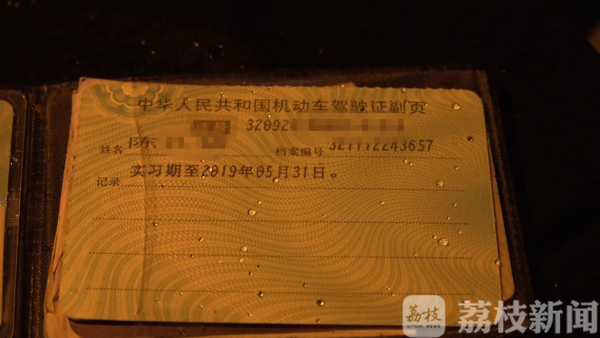 中华人民共和国机动车驾驶证副页
32092
姓名 陈 档案编号 321112243657
记录 实习期至2019年05月31日。
荔枝 荔枝新闻
LITCHI NEWS